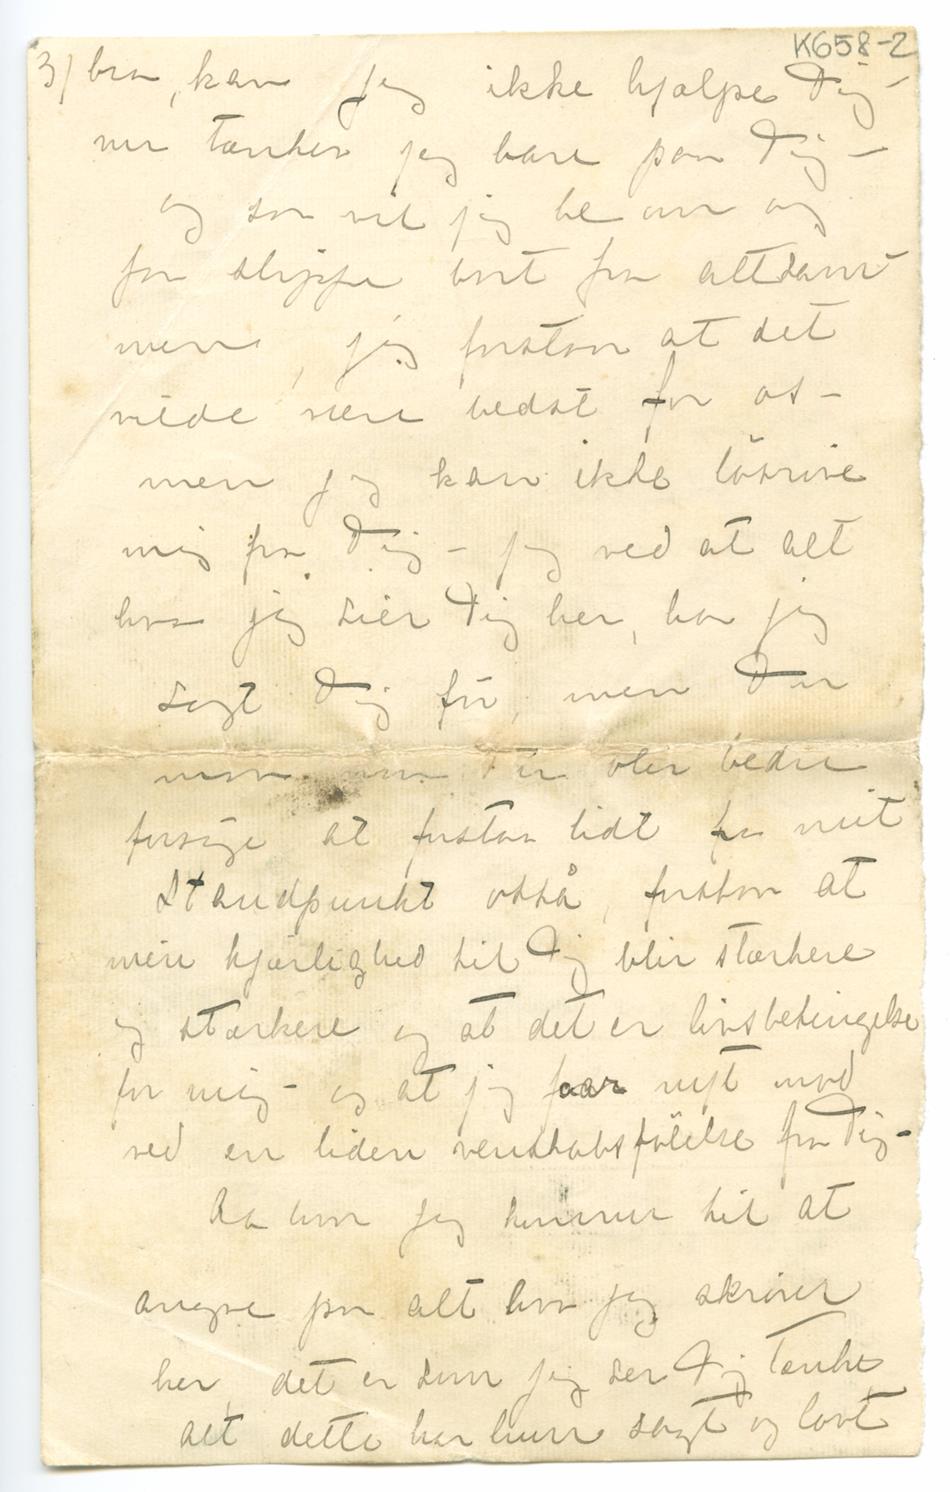 K658-2
3) bra, kan jeg ikke hjælpe Dig –
nu tænker jeg bare paa Dig –
og saa vil jeg be om og
faa slippe bort fra altsamt
men, jeg forstaar at det
vilde være bedst for os –
men jeg kan ikke løsrive
mig fra Dig – jeg ved at alt
hva jeg sier Dig her, har jeg
sagt Dig før, men Du
maa Du bedre
forsøge at forstaa lidt fra mit
Standpunkt også, forstaa at
min kjærlighed til Dig blir stærkere
og stærkere og at det er livsbetingelse
for mig – og at jeg faar nyt mod
ved en liden venskabsfølelse fra Dig –
Aa hvor jeg kommer til at
angre paa alt hva jeg skriver
her, det er som jeg ser Dig tænke
alt dette har hun sagt og lovt